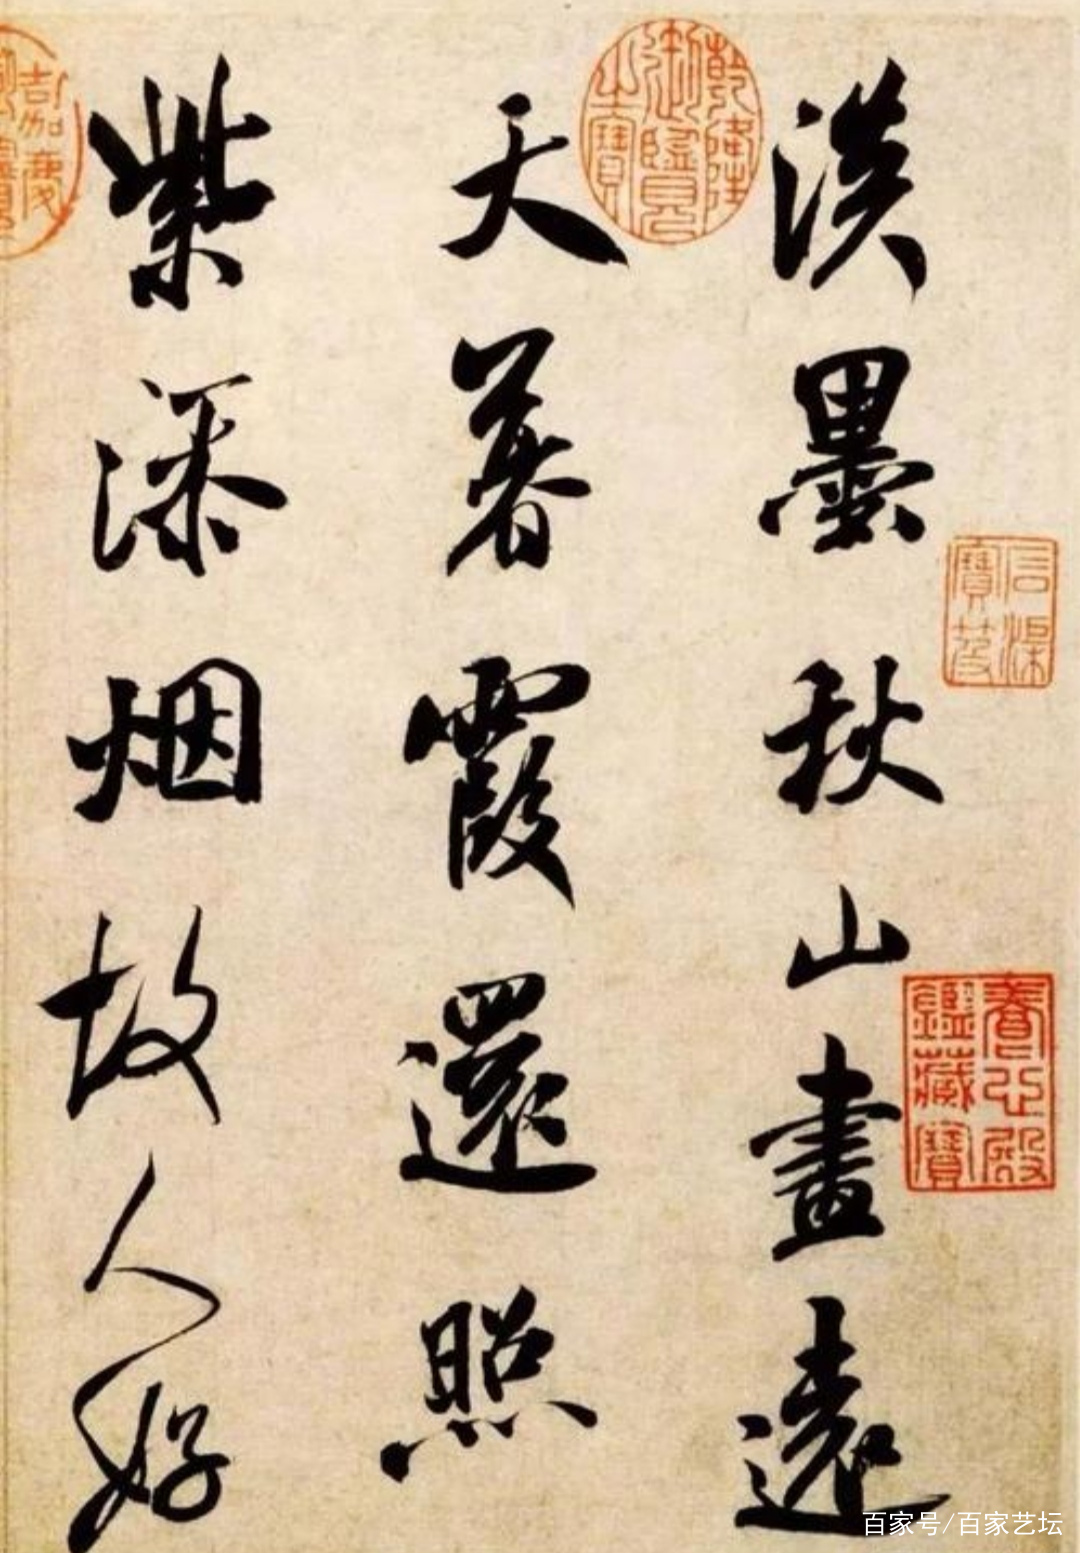 淡墨秋山畫遠
天暮霞還照
紫添烟故人好
乾隆御覽之寶
石渠寶笈
養心殿鑑藏寶
嘉慶
百家号/百家艺坛